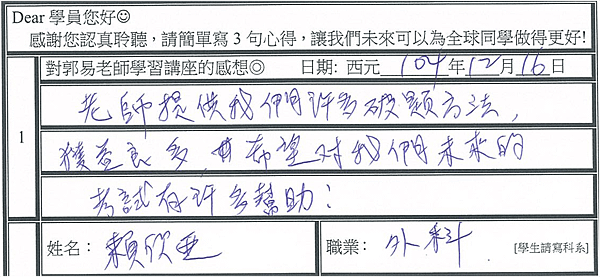 Dear 學員您好☺
感謝您認真聆聽，請簡單寫 3 句心得，讓我們未來可以為全球同學做得更好!
對郭易老師學習講座的感想◎ 日期: 西元 104 年 12 月 16 日
1
老師提供我們許多破題方法，
獲益良多，希望對我們未來的
考試有許多幫助！
姓名： 賴欣亞 職業： 外科 [學生請寫科系]